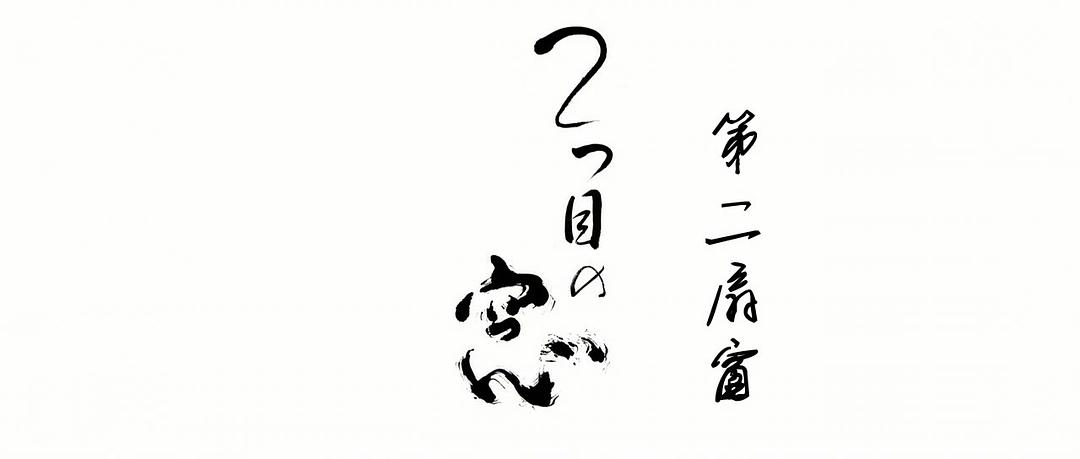 第二扇窗
2つ目の窓